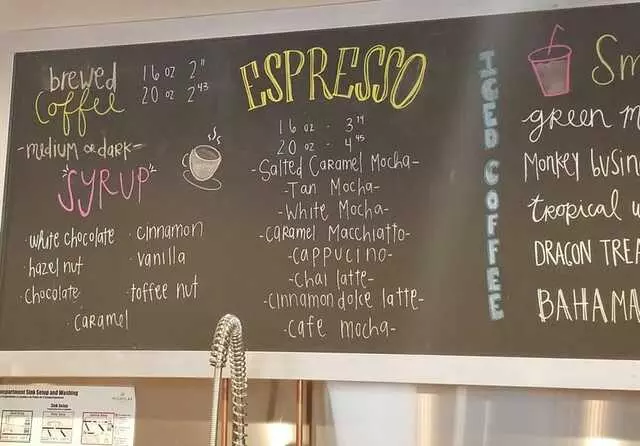 brewed 16 oz 2"
Coffee 20 oz 2 43
-medium or dark-
"SYRUP"
·white chocolate
·hazel nut
·chocolate
·cinnamon
·vanilla
·toffee nut
·caramel
ESPRESSO
16 oz · 3 79
20 oz · 4 45
-Salted Caramel Mocha-
-Tan Mocha-
-White Mocha-
-caramel Macchiatto-
-cappucino-
-chai latte-
-cinnamon dolce latte-
-cafe mocha-
ICED COFFEE
Sm
green m
Monkey busin
tropical
DRAGON TREA
BAHAMA
mpartment Sink Setup and Washing
Sink Setup